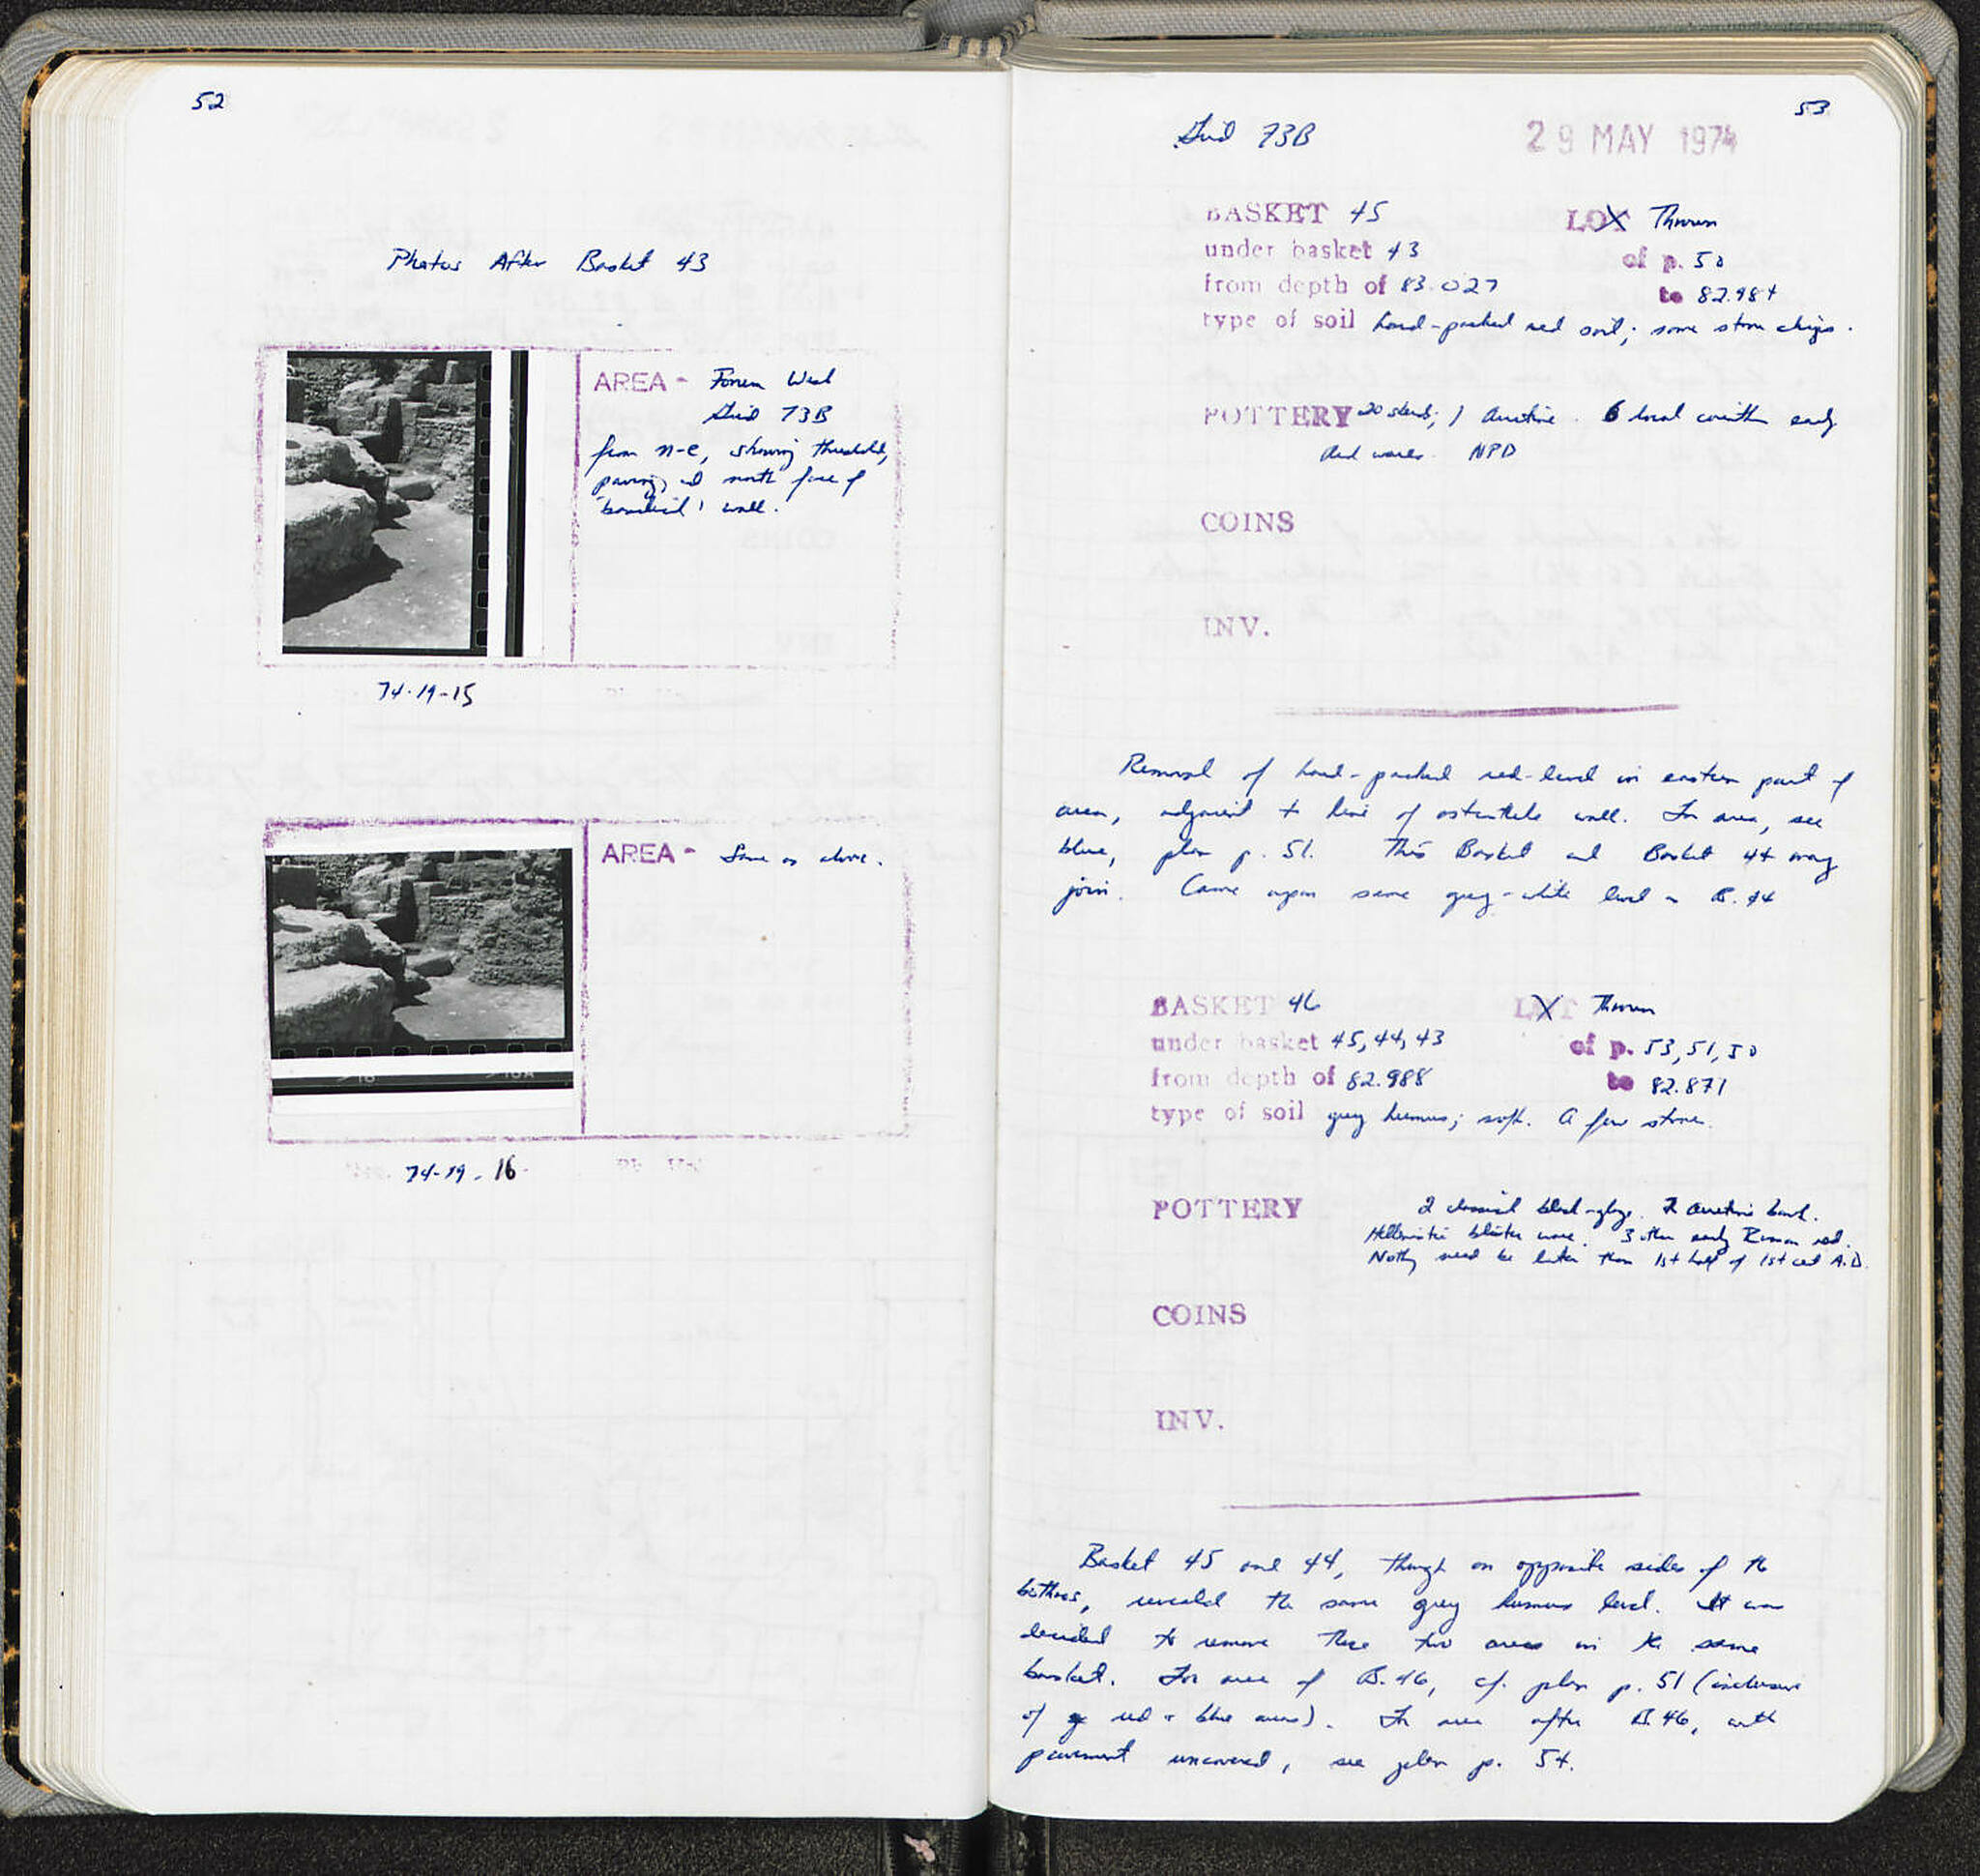 52
Photos After Basket 43
AREA - Forum West
Grid 73B
from n-e, showing threshold,
paving, and north face of
wall.
74-19-15
AREA - Same as above.
74-19-16
53
Grid 73B
29 MAY 1974
BASKET 45 LOT Thrown
under basket 43 of p. 50
from depth of 83.027 to 82.984
type of soil hard-packed red soil; some stone chips.
POTTERY 20 sherds; 1 Arretine. 6 local corinth early
red wares. NPD
COINS
INV.
Removal of hard-packed red-level in eastern part of
area, adjacent to line of ostensible wall. For area, see
blue, plan p. 51. This Basket and Basket 44 may
join. Came upon same grey-white level in B. 44
BASKET 46 LOT Thrown
under basket 45, 44, 43 of p. 53, 51, 50
from depth of 82.988 to 82.871
type of soil grey humus; soft. A few stones.
POTTERY 2 classical black-glaze. 2 Arretine bowl.
Hellenistic blister ware. 3 other early Roman red.
Nothing need be later than 1st half of 1st cent A.D.
COINS
INV.
Basket 45 and 44, though on opposite sides of the
bothros, revealed the same grey humus level. It was
decided to remove these two areas in the same
basket. For area of B. 46, cf. plan p. 51 (inclusive
of red + blue areas). For area after B. 46, with
pavement uncovered, see plan p. 54.